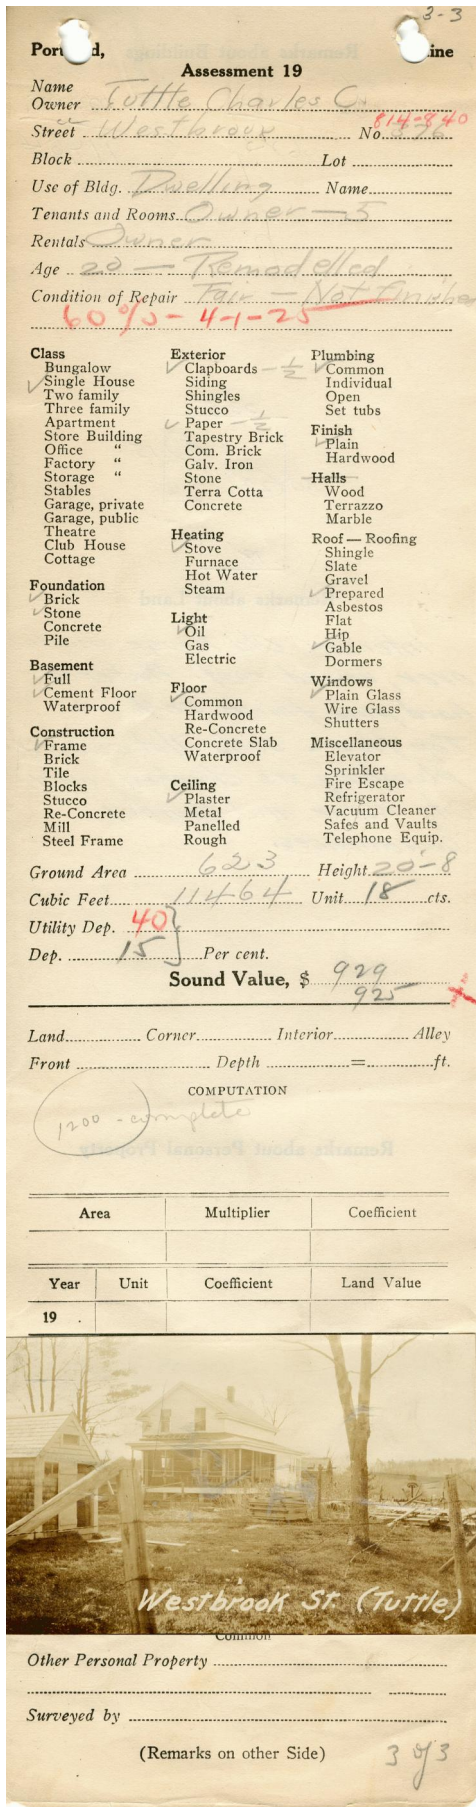 3-3
Portland, Maine
Assessment 19
Name
Owner Tuttle Charles C.
814-840
Street Westbrook No. 376
Block Lot
Use of Bldg. Dwelling Name
Tenants and Rooms Owner - 5
Rentals Owner
Age 20 - Remodelled
Condition of Repair Fair - Not finished
60% - 4-1-25
Class
Bungalow
✓ Single House
Two family
Three family
Apartment
Store Building
Office "
Factory "
Storage "
Stables
Garage, private
Garage, public
Theatre
Club House
Cottage
Foundation
✓ Brick
✓ Stone
Concrete
Pile
Basement
✓ Full
✓ Cement Floor
Waterproof
Construction
✓ Frame
Brick
Tile
Blocks
Stucco
Re-Concrete
Mill
Steel Frame
Exterior
✓ Clapboards - 1/2
Siding
Shingles
Stucco
✓ Paper - 1/2
Tapestry Brick
Com. Brick
Galv. Iron
Stone
Terra Cotta
Concrete
Heating
✓ Stove
Furnace
Hot Water
Steam
Light
✓ Oil
Gas
Electric
Floor
✓ Common
Hardwood
Re-Concrete
Concrete Slab
Waterproof
Ceiling
✓ Plaster
Metal
Panelled
Rough
Plumbing
✓ Common
Individual
Open
Set tubs
Finish
✓ Plain
Hardwood
Halls
Wood
Terrazzo
Marble
Roof — Roofing
Shingle
Slate
Gravel
✓ Prepared
Asbestos
Flat
Hip
✓ Gable
Dormers
Windows
✓ Plain Glass
Wire Glass
Shutters
Miscellaneous
Elevator
Sprinkler
Fire Escape
Refrigerator
Vacuum Cleaner
Safes and Vaults
Telephone Equip.
Ground Area 623 Height 20-8
Cubic Feet 11464 Unit 18 cts.
Utility Dep. 40
Dep. 15 Per cent.
Sound Value, $ 929
925 +
Land Corner Interior Alley
Front Depth = ft.
COMPUTATION
1200 - complete
Area Multiplier Coefficient
Year Unit Coefficient Land Value
19 .
Westbrook St. (Tuttle)
Common
Other Personal Property
Surveyed by
(Remarks on other Side)
3 of 3